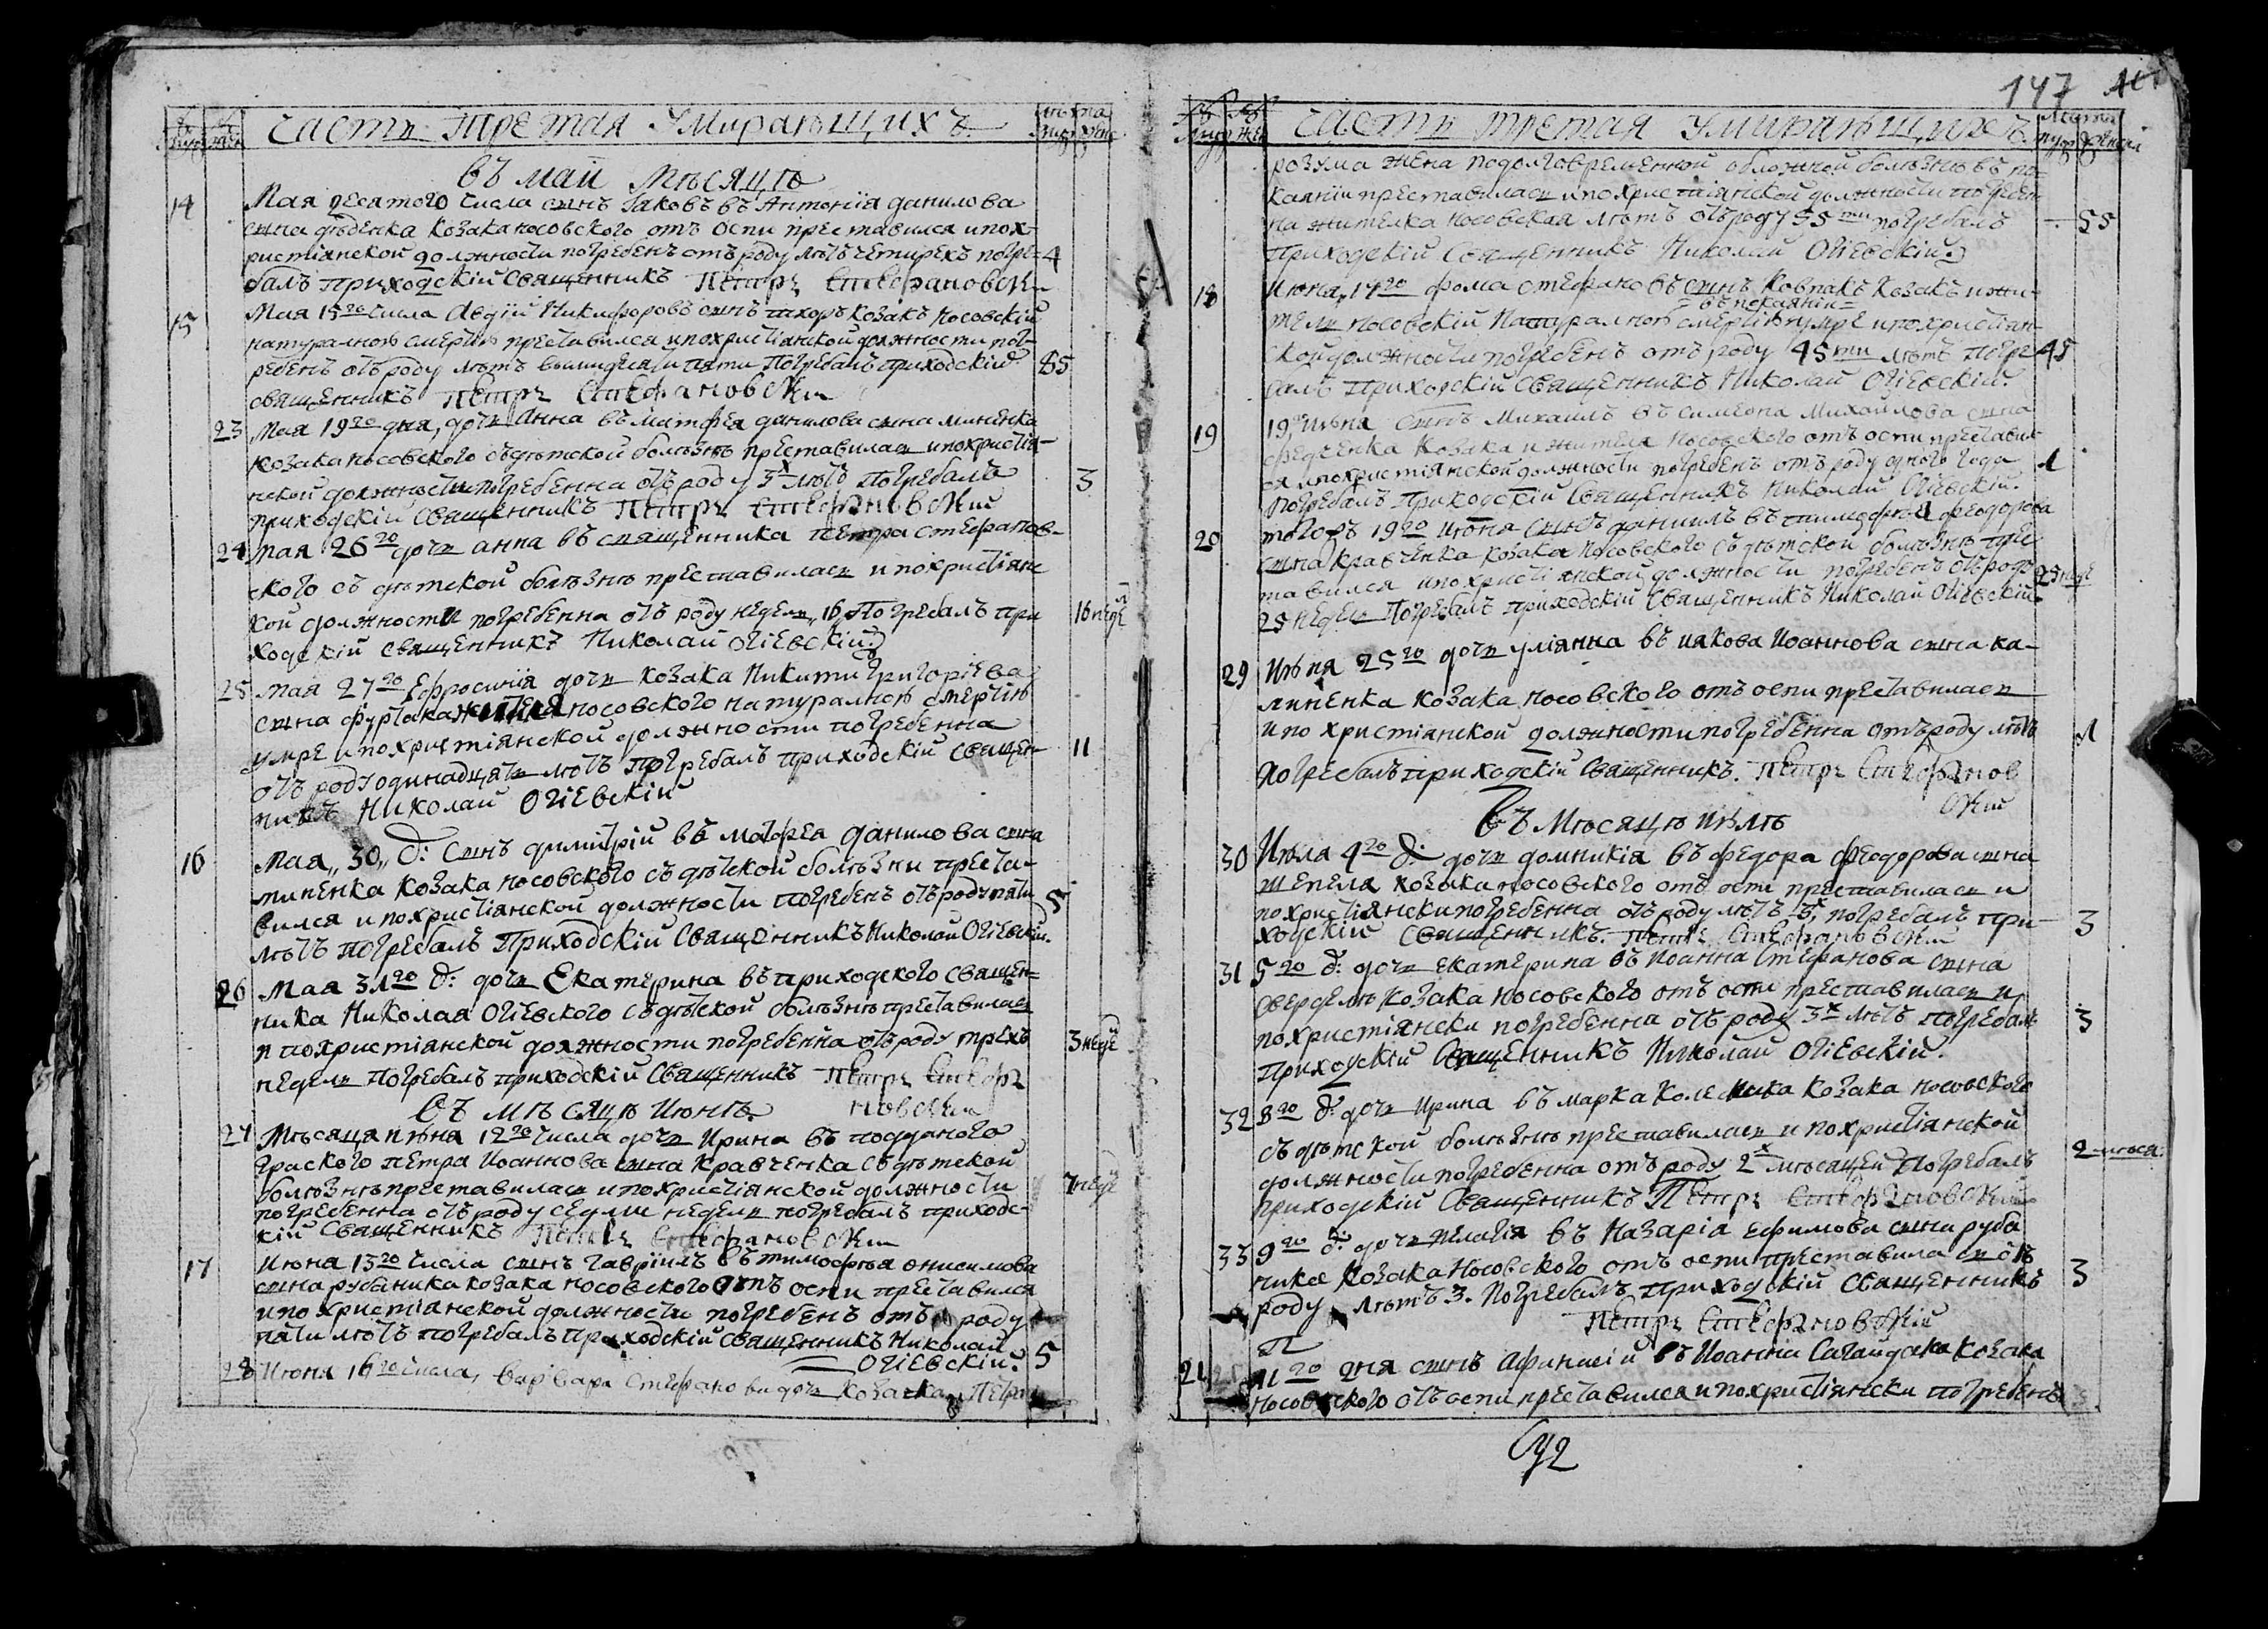 Часть Третая Умирающихъ
въ маи мѣсяцѣ
14 Мая десятого числа сынъ Iаковъ въ Антонiя данилова
сына дѣденка козака носовского отъ оспи преставился и пох-
ристiянской должности погребенъ отъ роду лѣтъ четирехъ погре- 4
балъ приходскiй священникъ Петръ Стефановскiй
15 Мая 15го числа Авдiй Никифоровъ сынъ тхоръ козакъ Носовскiй
натуралною смертiю преставился и похристiянской должности пог-
ребенъ отъ роду лѣтъ восмидесяти пяти Погребалъ приходскiй 85
священникъ Петръ Стефановскiй
23 Мая 19го дня, дочь Анна въ Матфея данилова сына миненка
козака носовского съ дѣтской болѣзни преставилась и похристiя-
нской должности погребенна отъ роду 3х лѣтъ Погребалъ 3
приходскiй священникъ Петръ Стефановскiй
24 Мая 26го дочь анна въ священника Петра стефанов-
ского съ дѣтской болѣзню преставилась и похристiянс
кой должности погребенна отъ роду недель 16 Погребалъ при 16 неде
ходскiй священникъ Николай Огiевскiй
25 Мая 27го Ефросинiя дочь козака Никити Григорiева
сына фурсака жителя носовского натуралною смертiю
умре и похристiянской должности погребенна
отъ роду одинадцять лѣтъ Погребалъ приходскiй священ- 11
никъ Николай Огiевскiй
16 Мая 30 д: Сынъ димитрiй въ матфея данилова сына
миненка козака носовского съ дѣтской болѣзни преста-
вился и похристiянской должности погребенъ отъ роду пяти 5
лѣтъ погребалъ Приходскiй Священникъ Николай Огiевскiй.
26 Мая 31го д: дочь Екатерина въ приходского священ-
ника Николая Огiевского съ дѣтской болѣзню преставилась
и похристiянской должности погребенна отъ роду трехъ 3 неде
недель Погребалъ приходскiй Священникъ Петръ Стефа
новскiй
Въ мѣсяцѣ Июнѣ
27 Мѣсяця июня 12го числа дочь Ирина въ подданого
Петра Иоаннова сына кравченка съ дѣтской
болѣзню преставилась и похристiянской должности 7 неде
погребенна отъ роду седми недель погребалъ приходс-
кiй Священникъ Петръ Стефановскiй
17 Июня 13го числа сынъ Гаврiилъ въ тимофея онисимова
сына рубаника козака носовского отъ оспи преставился
и похристiянской должности погребенъ отъ роду
пяти лѣтъ погребалъ приходскiй священникъ Николай 5
Огiевскiй.
28 Июня 16го числа, варвара стефанова дочь козачка
147
Часть третая умирающихъ
розума жена подолговременной обложной болѣзню въ по-
каянiи преставилась и похристiянской должности погребен-
на жителка носовская лѣтъ отъ роду 55ти погребалъ 55
Приходскiй Священникъ Николай Огiевскiй.
18 Июня 17го фома стефановъ сынъ ковпакъ козакъ и жи-
въ покаянiи
тель носовскiй Натуралною смертiю умре и похристiян-
ской должности погребенъ отъ роду 45ти лѣтъ Погре 45
балъ приходскiй священникъ Николай Огiевскiй.
19 19го июня Сынъ Михаилъ въ симеона Михайлова сына
феденка козака и жителя носовского отъ оспи преставил-
ся и похристiянской должности погребенъ отъ роду одного года 1
Погребалъ Приходскiй Священникъ Николай Огiевскiй.
20 тогожъ 19го июня сынъ данiилъ въ тимофея феодорова
сына кравченка козака носовского съ дѣтской болѣзню прес
тавился и похристiянской должности погребенъ отъ роду 25 неде
25 недель Погребалъ приходскiй Священникъ Николай Огiевскiй.
29 Июня 25го дочь улiянна въ иякова Иоаннова сына ка-
линенка козака носовского отъ оспи преставилась
и по христiянской должности погребенна отъ роду лѣтъ 1
Погребалъ приходскiй Священникъ. Петръ Стефанов
скiй
Въ Мѣсяцѣ июлѣ
30 Июла 4го д: дочь домникiя въ федора феодорова сына
шепеля козака носовского отъ оспи преставилась и
похристiянски погребенна отъ роду лѣтъ 3х, погребалъ при- 3
ходскiй Священникъ. Петръ Стефановскiй
31 5го д: дочь екатерина въ Иоанна Стефанова сына
свердела козака носовского отъ оспи преставилась и
похристiянски погребенна отъ роду 3х лѣтъ погребалъ 3
приходскiй Священникъ Николай Огiевскiй.
32 8го д: дочь Ирина въ марка колесника козака носовского
съ дѣтской болѣзню преставилась и похристiянской
должности погребенна отъ роду 2х мѣсяцей Погребалъ 2 мѣся.
приходскiй Священникъ Петръ Стефановскiй
33 9го д: дочь пелагiя въ Назарiя ефимова сына руба
ника козака Носовского отъ оспи преставилась отъ
роду лѣтъ 3. Погребалъ Приходскiй Священникъ 3
Петръ Стефановскiй
21 11го дня сынъ Афанасiй въ Иоанна Сагайдака козака
носовского отъ оспи преставился и похристiянски погребенъ